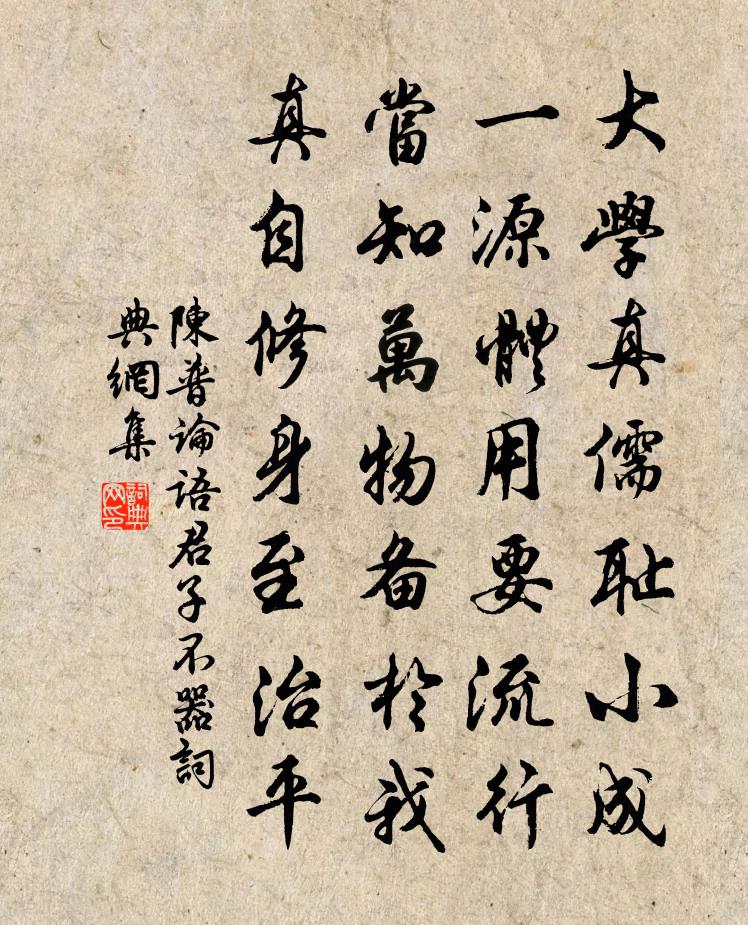 大學真儒耻小成
一源體用要流行
當知萬物备於我
真自修身至治平
陳普論語君子不器詞
典網集
詞典
网印